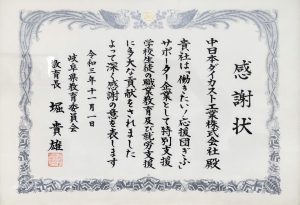 感謝状
中日本ダイカスト工業株式会社 殿
貴社は「働きたい!応援団ぎふ」
サポーター企業として特別支援
学校生徒の職業教育及び就労支援
に多大な貢献をされました
よって深く感謝の意を表します
令和三年十一月一日
岐阜県教育委員会
教育長 堀 貴雄